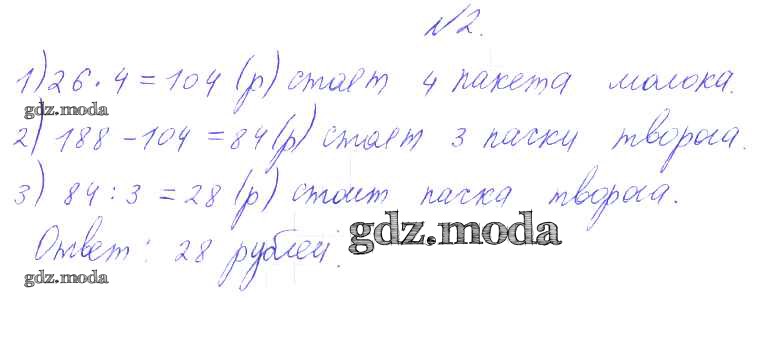 №2.
1) 26 · 4 = 104 (р) стоят 4 пакета молока.
gdz.moda
2) 188 - 104 = 84 (р) стоят 3 пачки творога.
3) 84 : 3 = 28 (р) стоит пачка творога.
gdz.moda
Ответ: 28 рублей.
gdz.moda